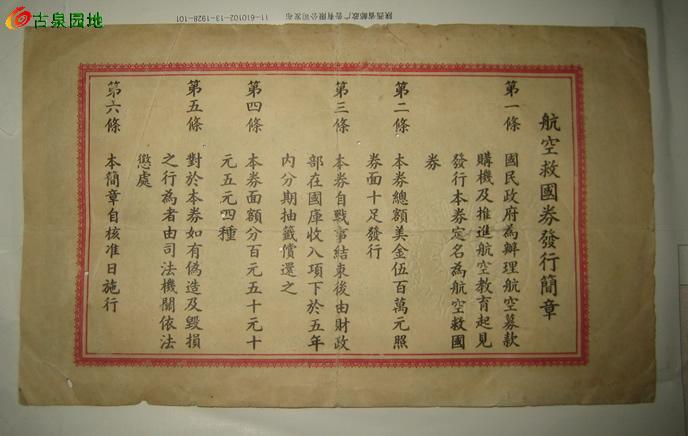 航空救國券發行簡章
第一條 國民政府為辦理航空募款
購機及推進航空教育起見
發行本券定名為航空救國
券
第二條 本券總額美金伍百萬元照
券面十足發行
第三條 本券自戰事結束後由財政
部在國庫收入項下於五年
內分期抽籤償還之
第四條 本券面額分百元五十元十
元五元四種
第五條 對於本券如有偽造及毀損
之行為者由司法機關依法
懲處
第六條 本簡章自核准日施行
古泉园地
陕西省邮政广告有限公司发布 11-610102-13-1928-101